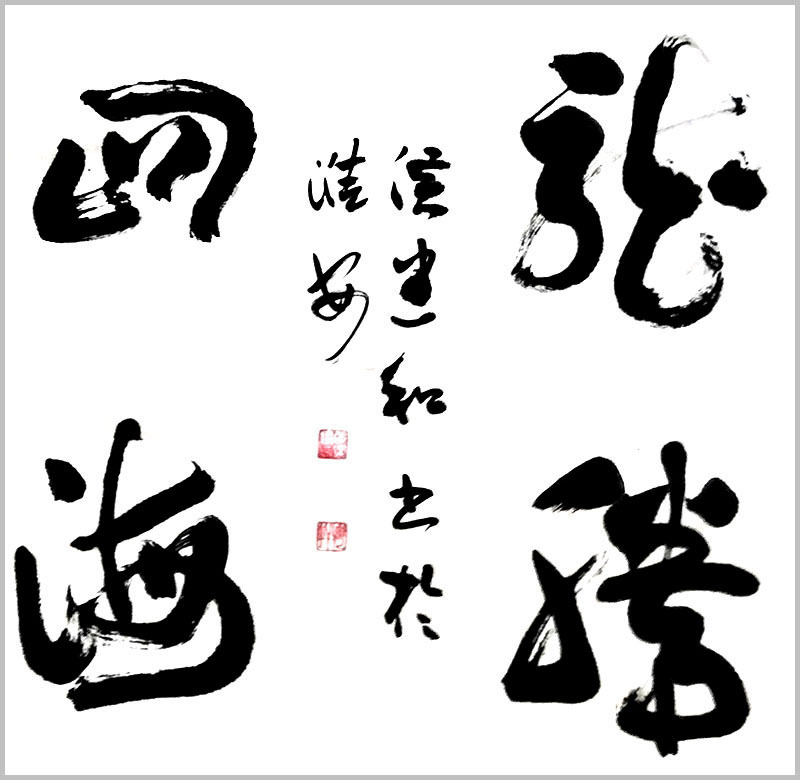 龍騰
和书於
淮安
四海